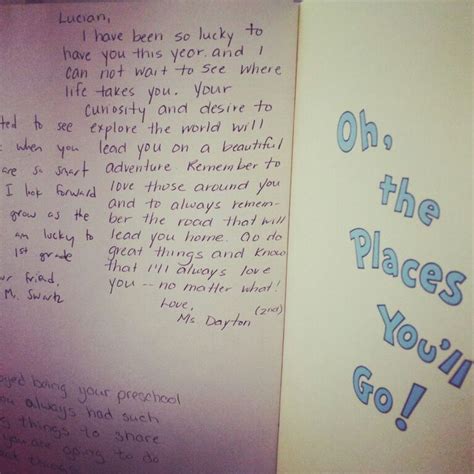 Lucian,
I have been so lucky to
have you this year. and I
can not wait to see where
life takes you. Your
curiosity and desire to
explore the world will
lead you on a beautiful
adventure. Remember to
love those around you
and to always remem-
ber the road that will
lead you home. Go do
great things and know
that I'll always love
you -- no matter what!
Love, (2nd)
Ms. Dayton
ted to see
when you
are so smart
I look forward
grow as the
am lucky to
1st grade
ur friend,
M. Swartz
yed being your preschool
ou always had such
g things to share
you are going to do
eat things
Oh,
the
Places
You'll
Go!